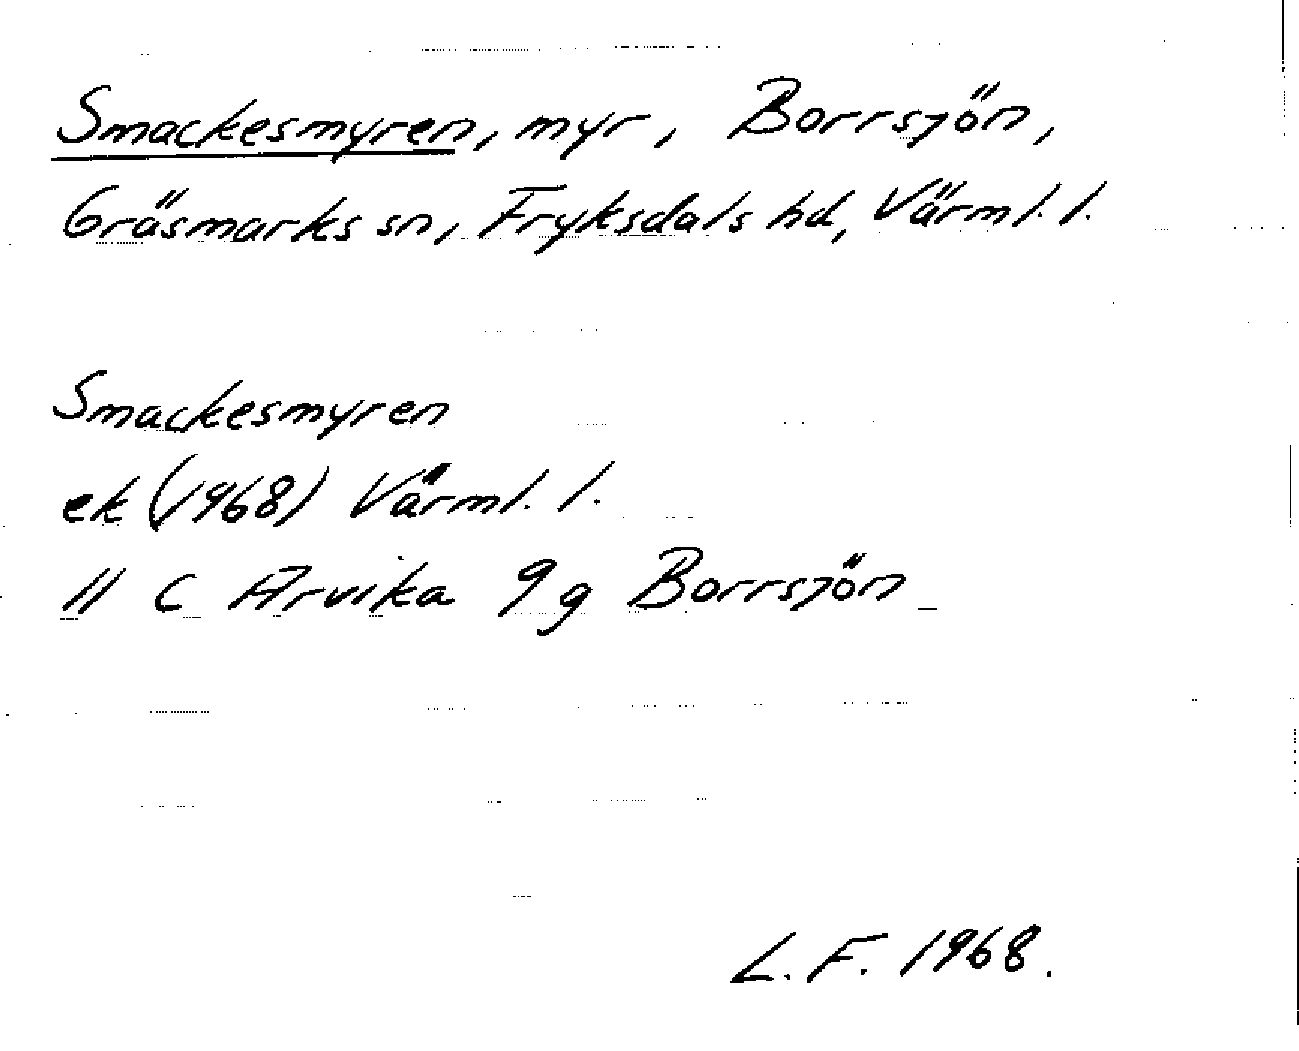 Smackesmyren, myr, Borrsjön,
Gräsmarks sn, Fryksdals hd, Värml. l.
Smackesmyren
ek (1968) Värml. l.
11 C Arvika 9g Borrsjön
L. F. 1968.